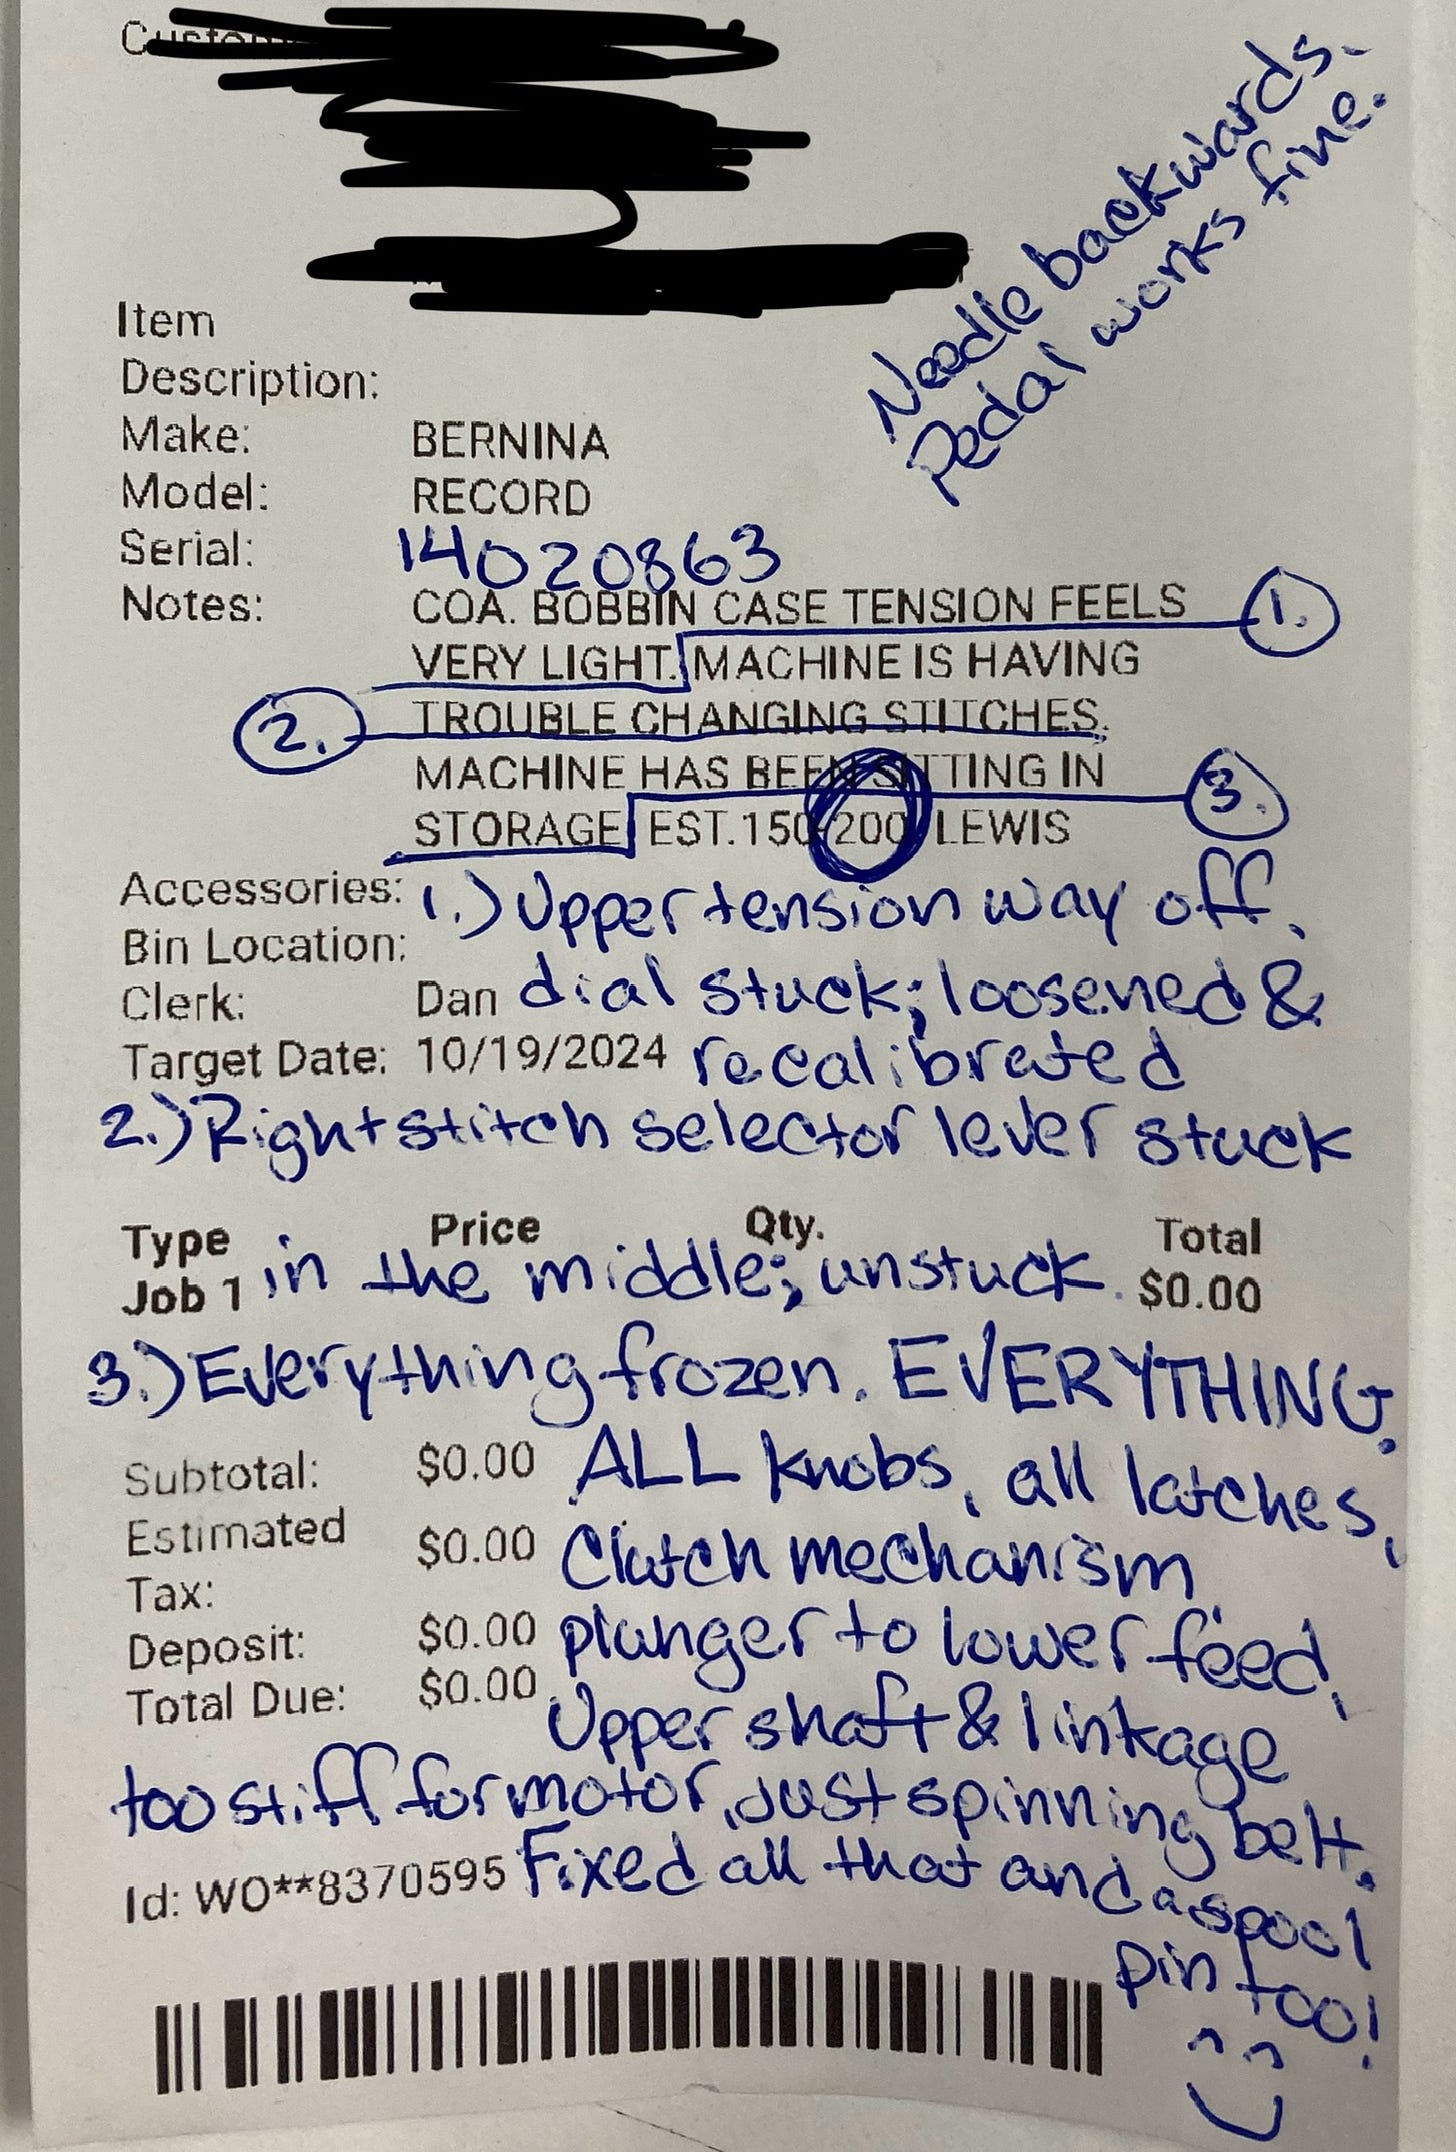 Needle backwards.
Pedal works fine.
Item
Description:
Make: BERNINA
Model: RECORD
Serial: 14020863
Notes: COA. BOBBIN CASE TENSION FEELS 1.
VERY LIGHT. MACHINE IS HAVING
2. TROUBLE CHANGING STITCHES.
MACHINE HAS BEEN SITTING IN 3.
STORAGE EST.150-200 LEWIS
Accessories: 1.) Upper tension way off,
Bin Location:
Clerk: Dan dial stuck; loosened &
Target Date: 10/19/2024 recalibrated
2.) Right stitch selector lever stuck
Type Price Qty. Total
Job 1 in the middle; unstuck. $0.00
3.) Everything frozen. EVERYTHING.
Subtotal: $0.00 ALL knobs, all latches,
Estimated $0.00 Clutch mechanism,
Tax:
Deposit: $0.00 plunger to lower feed,
Total Due: $0.00 Upper shaft & linkage
too stiff for motor, just spinning belt.
Id: WO**8370595 Fixed all that and a spool
pin too!